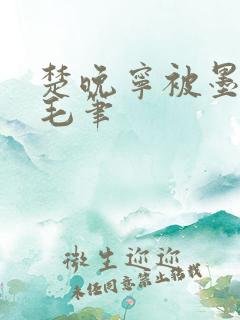 楚晚宁被墨
毛笔
微生迩迩
未经同意禁止转载